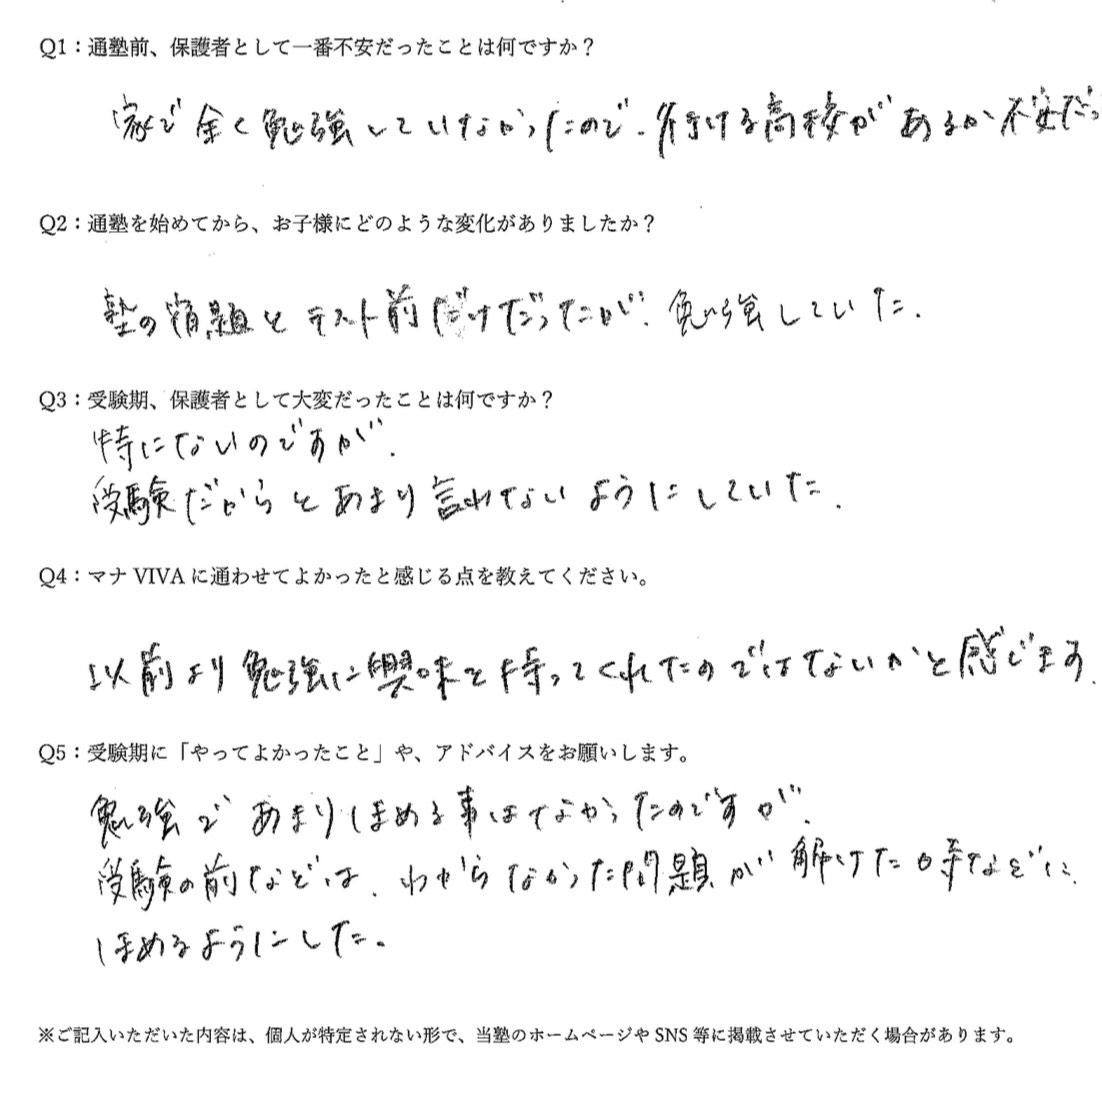 Q1：通塾前、保護者として一番不安だったことは何ですか？
家で全く勉強していなかったので、行ける高校があるか不安だっ
Q2：通塾を始めてから、お子様にどのような変化がありましたか？
塾の宿題とテスト前だけだったが、勉強していた。
Q3：受験期、保護者として大変だったことは何ですか？
特にないのですが、
受験だからとあまり言わないようにしていた。
Q4：マナVIVAに通わせてよかったと感じる点を教えてください。
以前より勉強に興味を持ってくれたのではないかと感じます。
Q5：受験期に「やってよかったこと」や、アドバイスをお願いします。
勉強であまりほめる事はなかったのですが、
受験の前などは、わからなかった問題が解けた時などに、
ほめるようにした。
※ご記入いただいた内容は、個人が特定されない形で、当塾のホームページやSNS等に掲載させていただく場合があります。